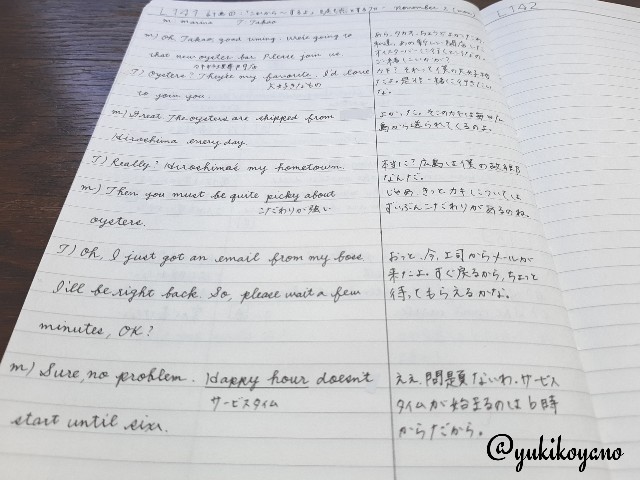 L141 November 2 (mon)
L142
m. marina T. Takao
m) Oh, Takao, good timing. We're going to
that new oyster bar. Please join us.
T) Oysters? They're my favorite. I'd love
大好きなもの
to join you.
m) Great. The oysters are shipped from
Hiroshima every day.
T) Really? Hiroshima's my hometown.
m) Then you must be quite picky about
こだわりが強い
oysters.
T) Oh, I just got an email from my boss.
I'll be right back. So, please wait a few
minutes, OK?
m) Sure, no problem. Happy hour doesn't
サービスタイム
start until six.
あら、タカオ、ちょうどよかったわ。
カキ? それって僕の大好き物
だよ。是非一緒に行きたい
よかったわ。そこのカキは毎日広
島から送られてくるのよ。
本当に?広島は僕の故郷
なんだ。
じゃあ、きっとカキについては
ずいぶんこだわりがあるのね。
おっと、今、上司からメールが
来たよ。すぐ戻るから、ちょっと
待ってもらえるかな。
ええ、問題ないわ。サービス
タイムが始まるのは6時
からだから。
@yukikoyano